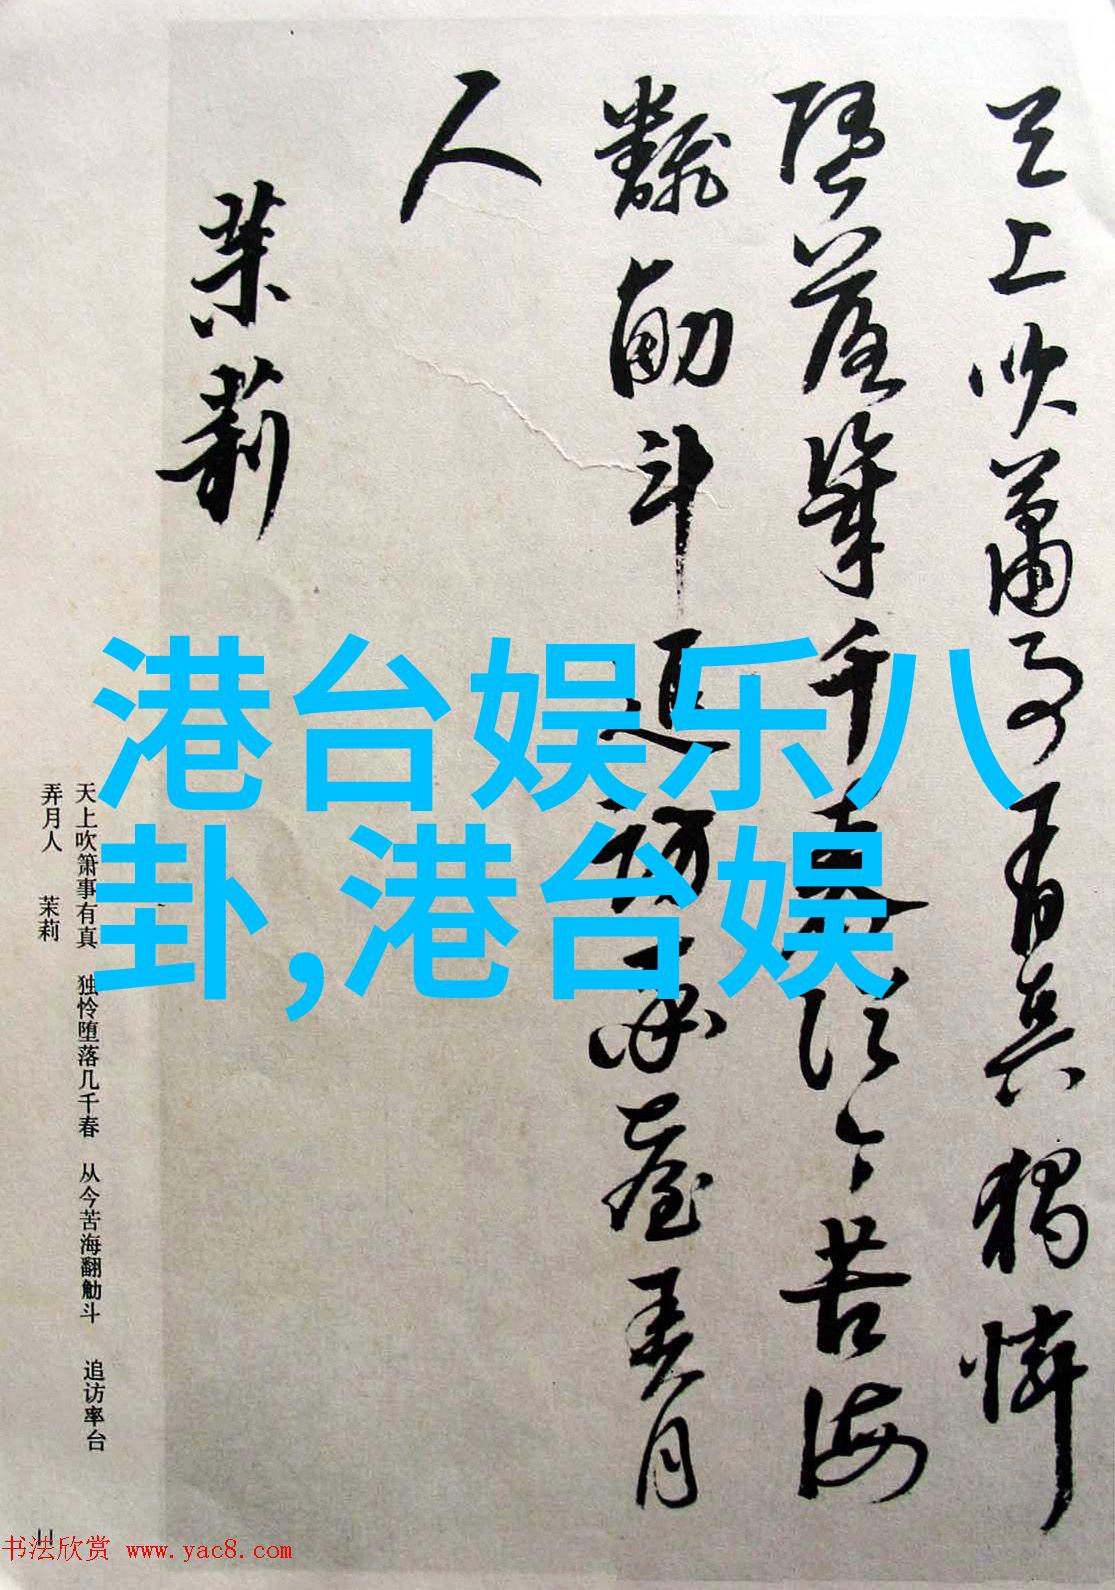 天上吹簫事有真獨憐
墮落幾千春從今苦海
飜觔斗追訪臺弄月
人
茉莉
港台娱乐八
卦,港台娱
天上吹箫事有真 独怜堕落几千春 从今苦海翻觔斗 追访率台
弄月人 茉莉
11
书法欣赏 www.yac8.com